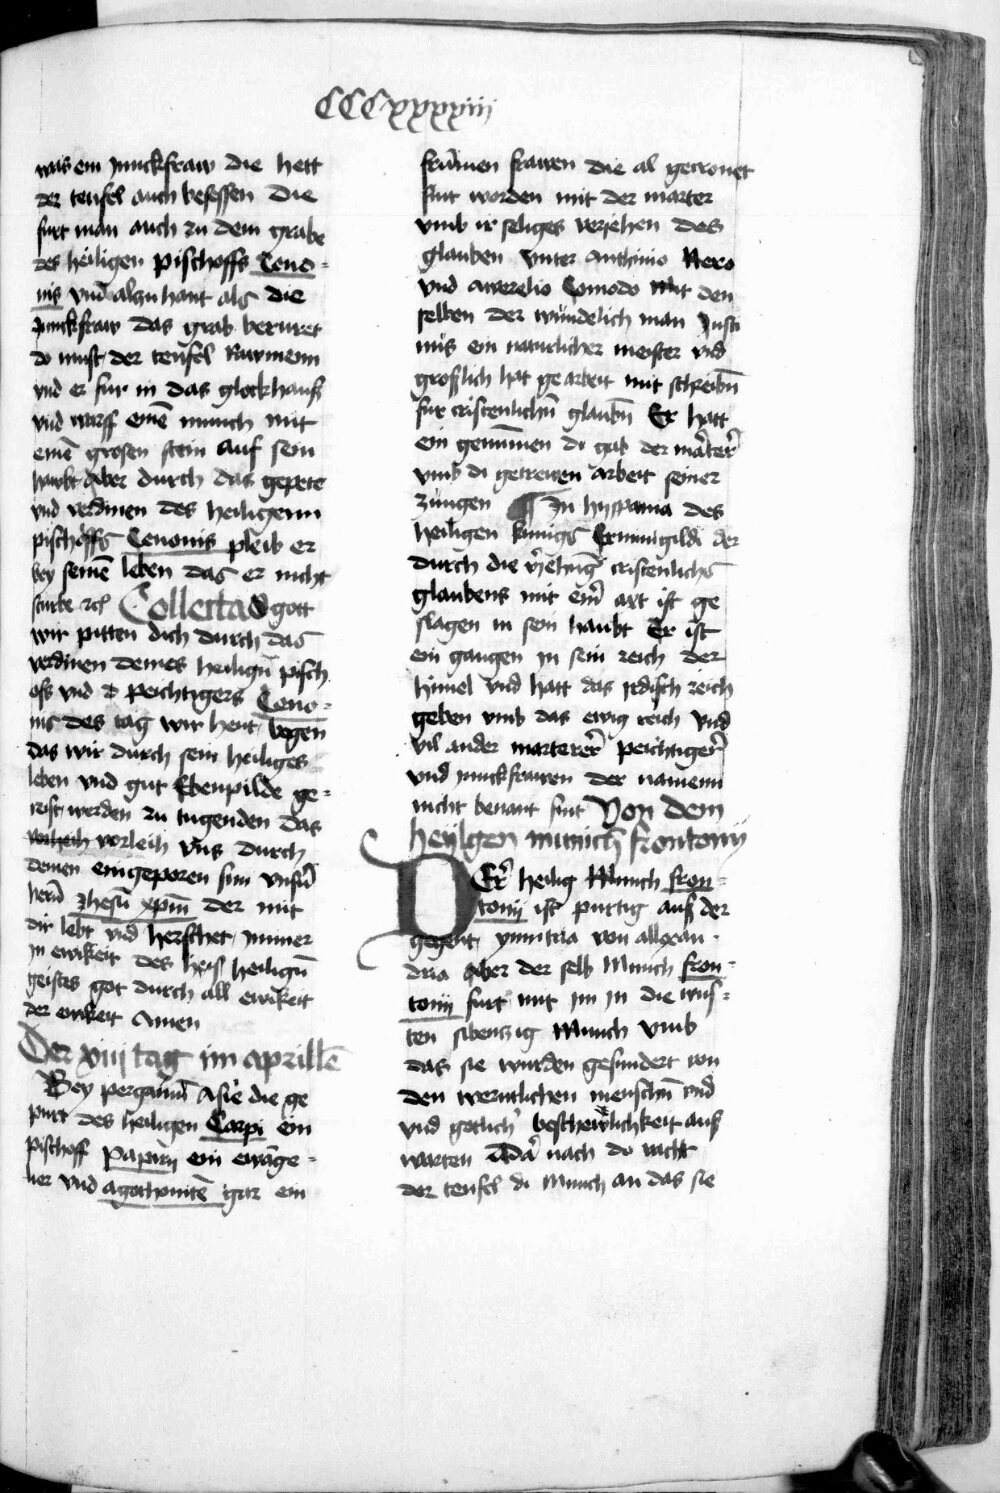 CCCxxxxiij
was ein junckfraw die hett
der teufel auch besessen die
furt man auch zu dem grabe
des heiligen pischoffs Ceno-
nis vnd alzu hant als die
Junckfraw das grab beruret
do must der teufel Rawmenn
vnd er fur in das glockhauß
vnd warff einē munch mit
einē grosen stein auf sein
hawbt Aber durch das gepete
vnd verdinen des heiligenn
pischoffs Cenonis pleib er
bey seinē leben das er nicht
sturbe rc Collecta O gott
wir pitten dich durch das
verdinen deines heilign̄ pisch
ofs vnd d peichtigers Ceno-
nis des tag wir hewt begen
das wir durch sein heiliges
leben vnd gut Ebenpilde ge-
reist werden zu tugenden das
vorleih vns durch
deinen eingeporen sun vnsn̄
herñ Jhesū xpm̄ der mit
dir lebt vnd herschet jmmer
jn ewikeit des heilign̄
geistes got durch all ewikeit
der ewikeit Amen
Der xiij tag im aprillē
Bey pergamū Asie die ge
purt des heiligen Carpi ein
pischoff Papirij ein ewāge-
lier vnd agathonicē gar ein
frūmen frawen die al gecronet
sint worden mit der marter
vmb ir seliges verjehen des
glauben Vnter Anthinio Nero
vnd Awrelio Comodo Mit den
selben der wūndelich man Justi
nus ein naturlicher meister vnd
groslich hat gearbeit mit schreibn̄
fur cristenlichn̄ glaubn̄ Er hatt
ein genummen di gab der mārterer
vmb di getrewen arbeit seiner
zungen ¶ In hyspania des
heiligen kunigs Ermingildi der
durch die cristenlichs
glaubens mit einr̄ axt ist ge
slagen in sein haubt Er ist
ein gangen in sein reich der
himel vnd hatt das jrdisch reich
geben vmb das ewig reich Vnd
vil ander marterer peichtiger
vnd junckfrawen der namenn
nicht benant sint Von dem
heylgen munich frontonij
DEr heilig Munch fron-
tonij ist purtig auß der
gegent ynnitria von allexan-
dria Aber der selb Munch fron-
tonij furt mit jm jn die wus-
ten sibenzig Munch vmb
das sie wurden gesundert von
den werntlichen menschn̄ vnd
vnd gotlich beschewlichkeit auß
warten Dar nach do vacht
der teufel di Munch an das sie